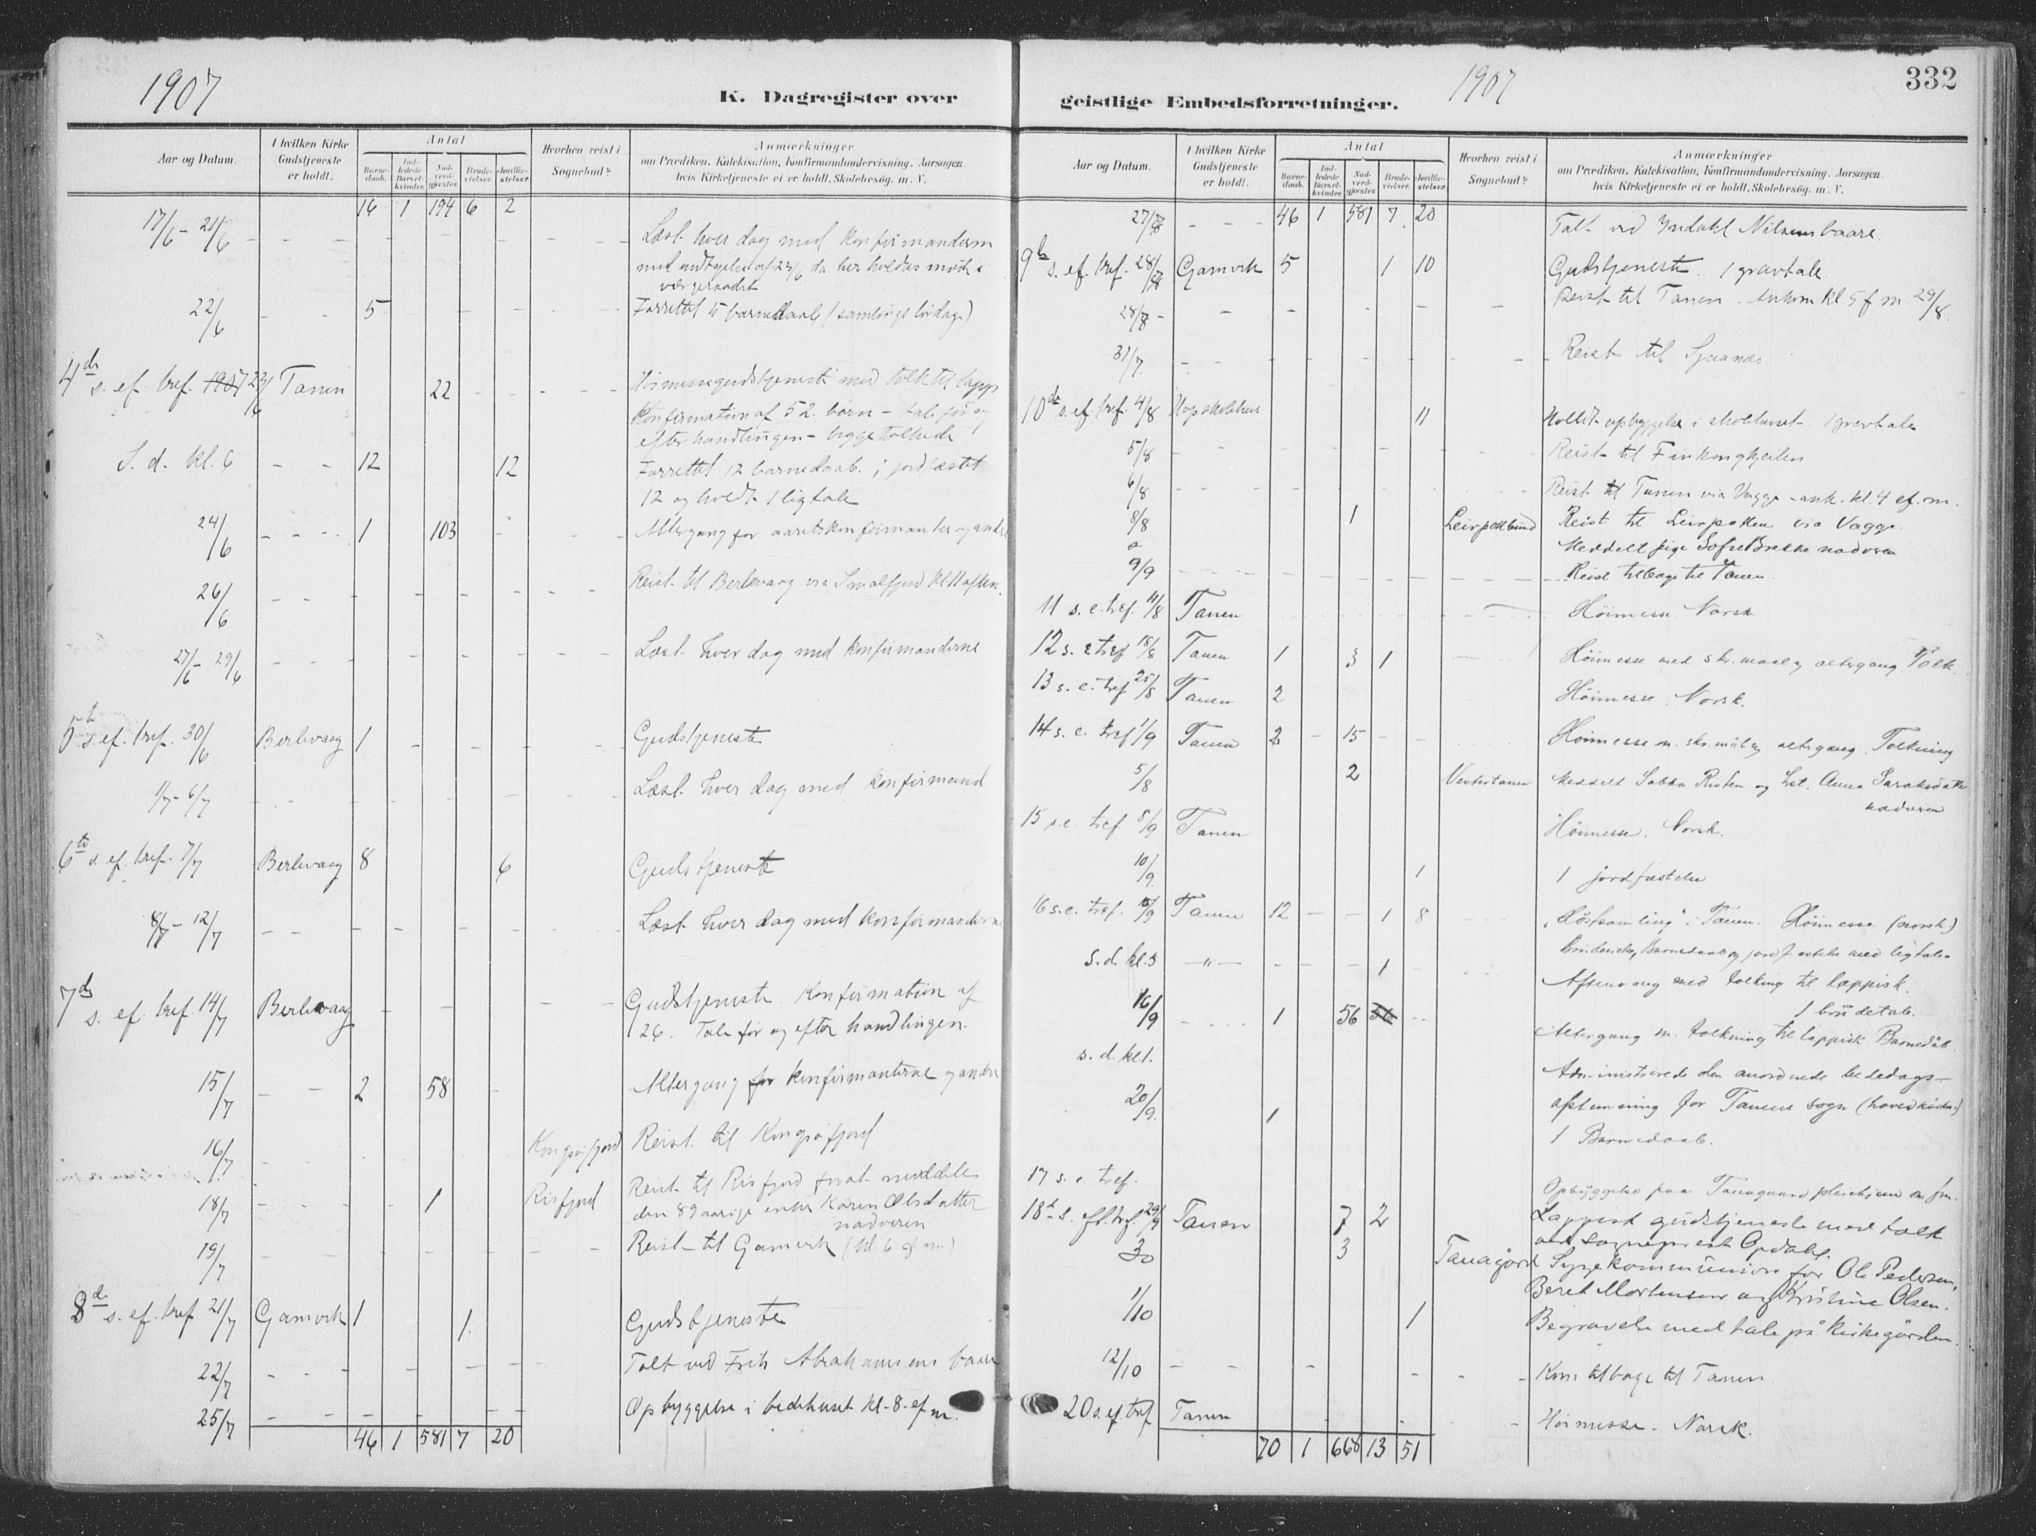 1907
K. Dagregister over
Aar og Datum.
I hvilken Kirke Gudstjeneste er holdt.
Antal
Barnedaab.
Indledede Barselkvinder.
Nadverdgjester.
Brudevielser.
Jordfæstelser.
Hvorhen reist i Sognebud?
Anmærkninger
om Prædiken, Katekisation, Konfirmandundervisning, Aarsagen
hvis Kirketjeneste ei er holdt, Skolebesøg, m. V.
16 1 194 6 2
17/6 - 21/6 Læst hver dag med konfirmanderne
med undtagelse af da her holdtes møde i
vergeraadet
22/6 5 Forrettet 5 barnedaab (samlings lørdag)
4de s. ef. tref. 1907 23/6 Tanen 22 Høimessegudstjeneste med tolk til lapp.
Konfirmation af 52 børn - tale før og
efter handlingen - begge tolkede
S. d. kl. 6 12 12 Forrettet 12 barnedaab, jordfæstet
12 og holdt 1 ligtale
24/6 1 103 Altergang for aarets konfirmanter og andre
26/6 Reist til Berlevaag via Smalfjord kl 11 aften.
27/6 - 29/6 Læst hver dag med konfirmanderne
5te s. ef. tref. 30/6 Berlevaag 1 Gudstjeneste
1/7 - 6/7 Læst hver dag med konfirmand
6te s. ef. tref. 7/7 Berlevaag 8 6 Gudstjeneste
8/7 - 12/7 Læst hver dag med konfirmanderne
7de s. ef. tref. 14/7 Berlevaag Gudstjeneste. Konfirmation af
26. Tale før og efter handlingen.
15/7 2 58 Altergang for konfirmanterne og andre
16/7 Kongsfjord Reist til Kongsfjord
18/7 1 Risfjord Reist til Risfjord for at meddele
den 89 aarige enke Karen Olsdatter
nadveren
19/7 Reist til Gamvik (kl. 6 ef m.)
8de s. ef. tref 21/7 Gamvik 1 1 Gudstjeneste
22/7 Talt ved Frits Abrahamsens baare
25/7 Opbyggelse i bedehuset kl. 8 ef m.
46 1 581 7 20
1907
332
geistlige Embedsforretninger.
Aar og Datum.
I hvilken Kirke Gudstjeneste er holdt.
Antal
Barnedaab.
Indledede Barselkvinder.
Nadverdgjester.
Brudevielser.
Jordfæstelser.
Hvorhen reist i Sognebud?
Anmærkninger
om Prædiken, Katekisation, Konfirmandundervisning, Aarsagen
hvis Kirketjeneste ei er holdt, Skolebesøg, m. V.
27/7 46 1 581 7 20 Talt ved Nilsens baare
9de s. ef. tref. 28/7 Gamvik 5 1 10 Gudstjeneste. 1 gravtale.
28/8 Reist til Tanen. Ankom kl. 5 f m. 29/8.
31/7 Reist til
10de s. ef. tref. 4/8 Hops skolehus 11 Holdt opbyggelse i skolehuset. 1 gravtale
5/8 Reist til Finkongkjeilen
6/8 Reist til Tanen via Vagge - ank. kl. 4 ef. m.
8/8 1 Leirpollbund Reist til Leirpollen via Vagge.
Meddelt pige nadveren
9/9 Reist tilbage til Tanen.
11 s. e. tref. 11/8 Tanen Høimesse Norsk
12 s. e tref 18/8 Tanen 1 3 1 Høimesse med skr.maal og altergang Tolk
13 s. e. tref 25/8 Tanen 2 Høimesse. Norsk.
14 s. e. tref 1/9 Tanen 2 15 Høimesse m. skr.mål og altergang. Tolkning
5/8 2 Vestertanen Meddelt Sabba Risten og Anna
nadveren
15 s. e. tref 8/9 Tanen Høimesse. Norsk.
10/9. 1 1 jordfæstelse
16 s. e. tref. 15/9 Tanen 12 1 8 "Høstsamling" i Tanen. Høimesse (norsk)
Brudevielse, Barnedaab og jordfæstelse med ligtale
s. d. kl. 5 —"— 1 Aftensang med tolking til lappisk.
1 brudetale.
16/9 1 56 56 Altergang m. tolkning til lappisk Barnedåb
s. d. kl 1. Administrerede den anordnede bededags-
afstemning for Tanens sogn (hovedkirke)
20/9. 1 1 Barnedaab.
17 s. e tref. Opbyggelse paa Tanagaard pleiehjem
18de s. eft. tref. 29/9 Tanen 7 2 Lappisk gudstjeneste med tolk
ved sogneprest Opdahl.
30 3 Tanagård Sygekommunion for Ole Pedersen,
Beret Mortensen og Kristine Olsen.
1/10 1 Begravelse med tale på kirkegården.
12/10 Kom tilbage til Tanen
20 s. ef. tref Tanen Høimesse. Norsk.
70 1 668 13 51